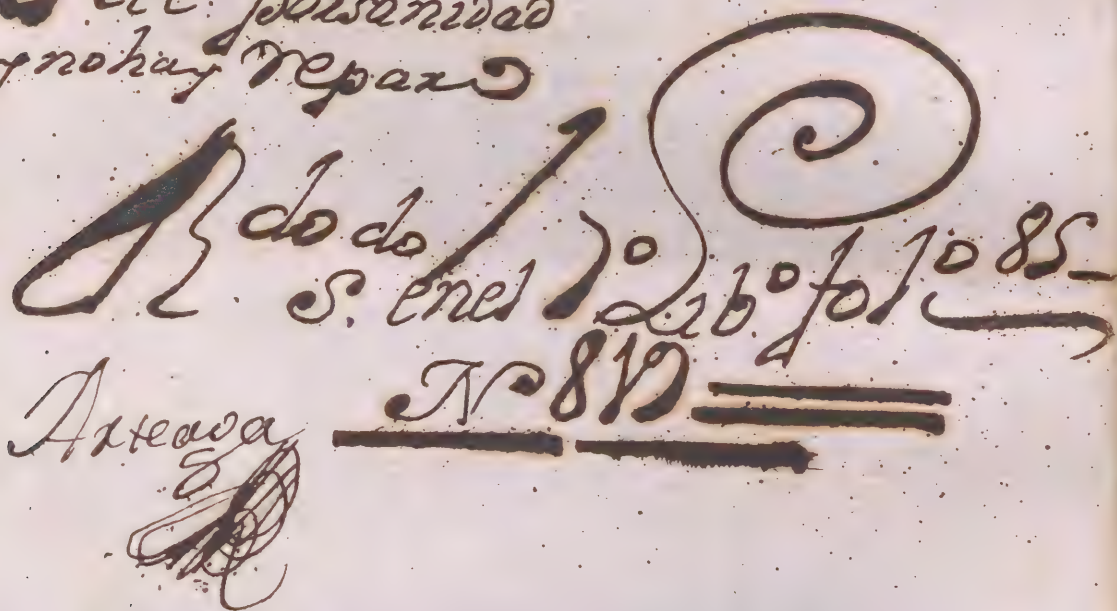 por sanidad
y no hay reparo
R do do
S. en el 1º Libº fol 1º 85
Nº
Arteaga